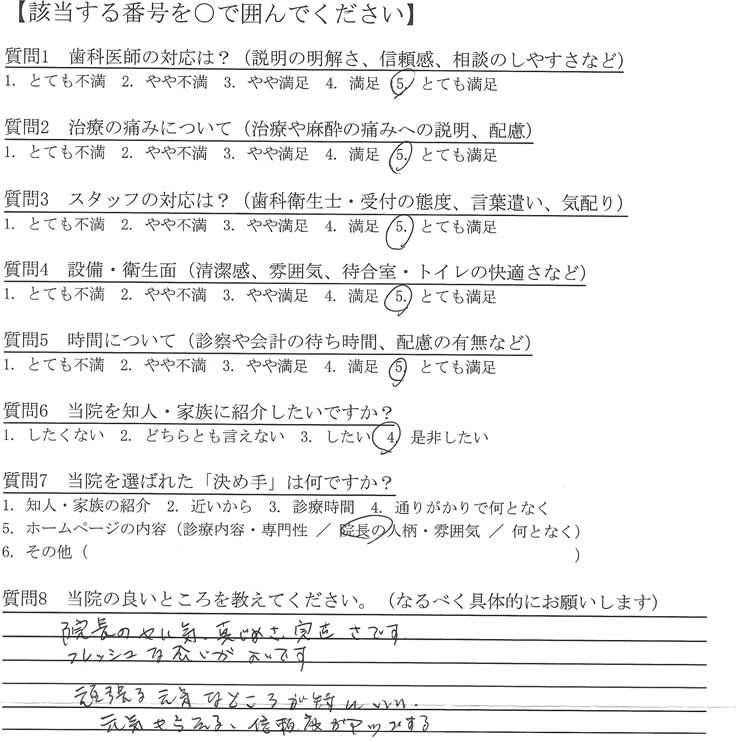 【該当する番号を〇で囲んでください】
質問1 歯科医師の対応は？（説明の明解さ、信頼感、相談のしやすさなど）
1. とても不満 2. やや不満 3. やや満足 4. 満足 5. とても満足
質問2 治療の痛みについて（治療や麻酔の痛みへの説明、配慮）
1. とても不満 2. やや不満 3. やや満足 4. 満足 5. とても満足
質問3 スタッフの対応は？（歯科衛生士・受付の態度、言葉遣い、気配り）
1. とても不満 2. やや不満 3. やや満足 4. 満足 5. とても満足
質問4 設備・衛生面（清潔感、雰囲気、待合室・トイレの快適さなど）
1. とても不満 2. やや不満 3. やや満足 4. 満足 5. とても満足
質問5 時間について（診察や会計の待ち時間、配慮の有無など）
1. とても不満 2. やや不満 3. やや満足 4. 満足 5 とても満足
質問6 当院を知人・家族に紹介したいですか？
1. したくない 2. どちらとも言えない 3. したい 4. 是非したい
質問7 当院を選ばれた「決め手」は何ですか？
1. 知人・家族の紹介 2. 近いから 3. 診療時間 4. 通りがかりで何となく
5. ホームページの内容（診療内容・専門性 ／ 院長の人柄・雰囲気 ／ 何となく）
6. その他（ ）
質問8 当院の良いところを教えてください。（なるべく具体的にお願いします）
院長のやる気、真じめさ、実直さです
フレッシュな感じがよいです
頑張る元気なところが特にいい。
元気もらえる、信頼感がアップする